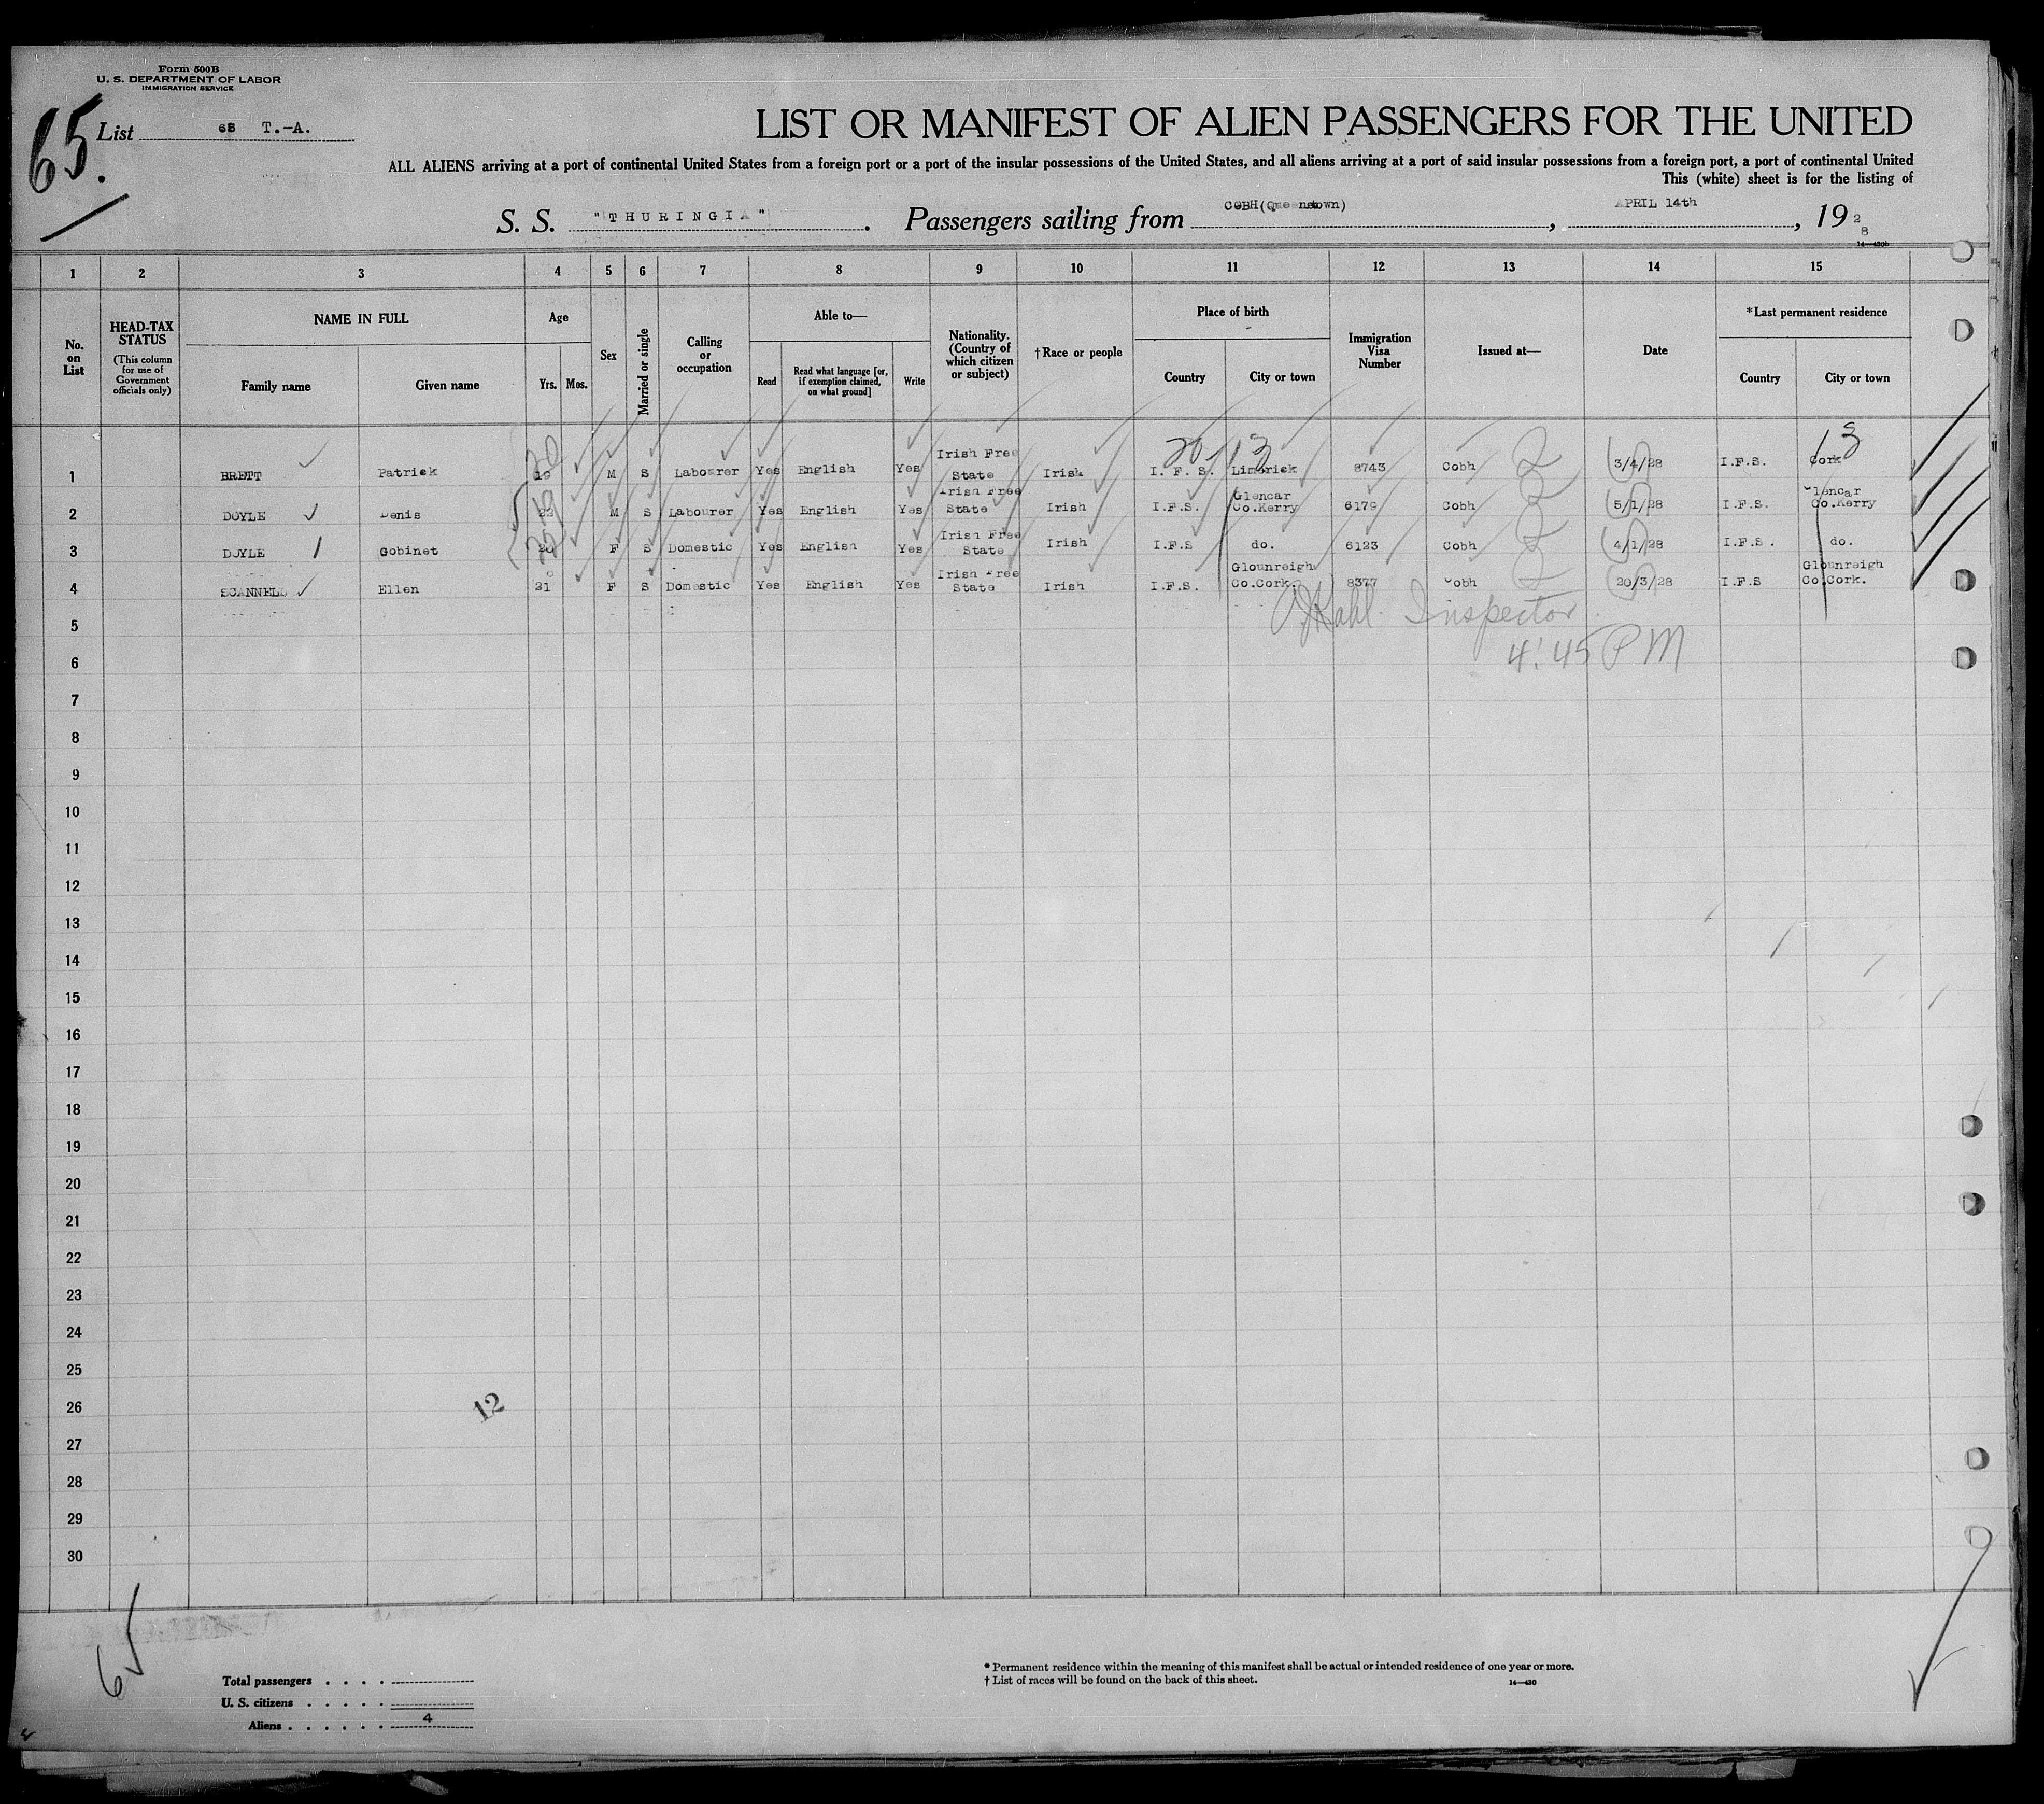 Form 500B
U. S. DEPARTMENT OF LABOR
IMMIGRATION SERVICE
65.
List 65 T.-A.
LIST OR MANIFEST OF ALIEN PASSENGERS FOR THE UNITED
ALL ALIENS arriving at a port of continental United States from a foreign port or a port of the insular possessions of the United States, and all aliens arriving at a port of said insular possessions from a foreign port, a port of continental United
This (white) sheet is for the listing of
S. S. "THURINGIA". Passengers sailing from COBH(Queenstown), APRIL 14th, 1928
14—430b
1 2 3 4 5 6 7 8 9 10 11 12 13 14 15
No. on List
HEAD-TAX STATUS (This column for use of Government officials only)
NAME IN FULL
Family name Given name
Age
Yrs. Mos.
Sex
Married or single
Calling or occupation
Able to—
Read
Read what language [or, if exemption claimed, on what ground]
Write
Nationality. (Country of which citizen or subject)
†Race or people
Place of birth
Country City or town
Immigration Visa Number
Issued at—
Date
*Last permanent residence
Country City or town
20 20 13 13
1 BRETT Patrick 19 M S Labourer Yes English Yes Irish Free State Irish I. F. S. Limerick 8743 Cobh 2 3/4/28 I.F.S. Cork
2 DOYLE Denis 22 M S Labourer Yes English Yes Irish Free State Irish I.F.S. Glencar Co.Kerry 6179 Cobh 2 5/1/28 I.F.S. Glencar Co.Kerry
3 DOYLE Gobinet 20 F S Domestic Yes English Yes Irish Free State Irish I.F.S do. 6123 Cobh 2 4/1/28 I.F.S. do.
4 SCANNELL Ellen 21 F S Domestic Yes English Yes Irish Free State Irish I.F.S. Glounreigh Co.Cork. 8377 Cobh 2 20/3/28 I.F.S Glounreigh Co.Cork.
5 Kahl Inspector
6 4:45 PM
7
8
9
10
11
12
13
14
15
16
17
18
19
20
21
22
23
24
25
26 12
27
28
29
30
65
Total passengers . . . .
U. S. citizens . . . . .
Aliens . . . . . . 4
* Permanent residence within the meaning of this manifest shall be actual or intended residence of one year or more.
† List of races will be found on the back of this sheet.
14—430